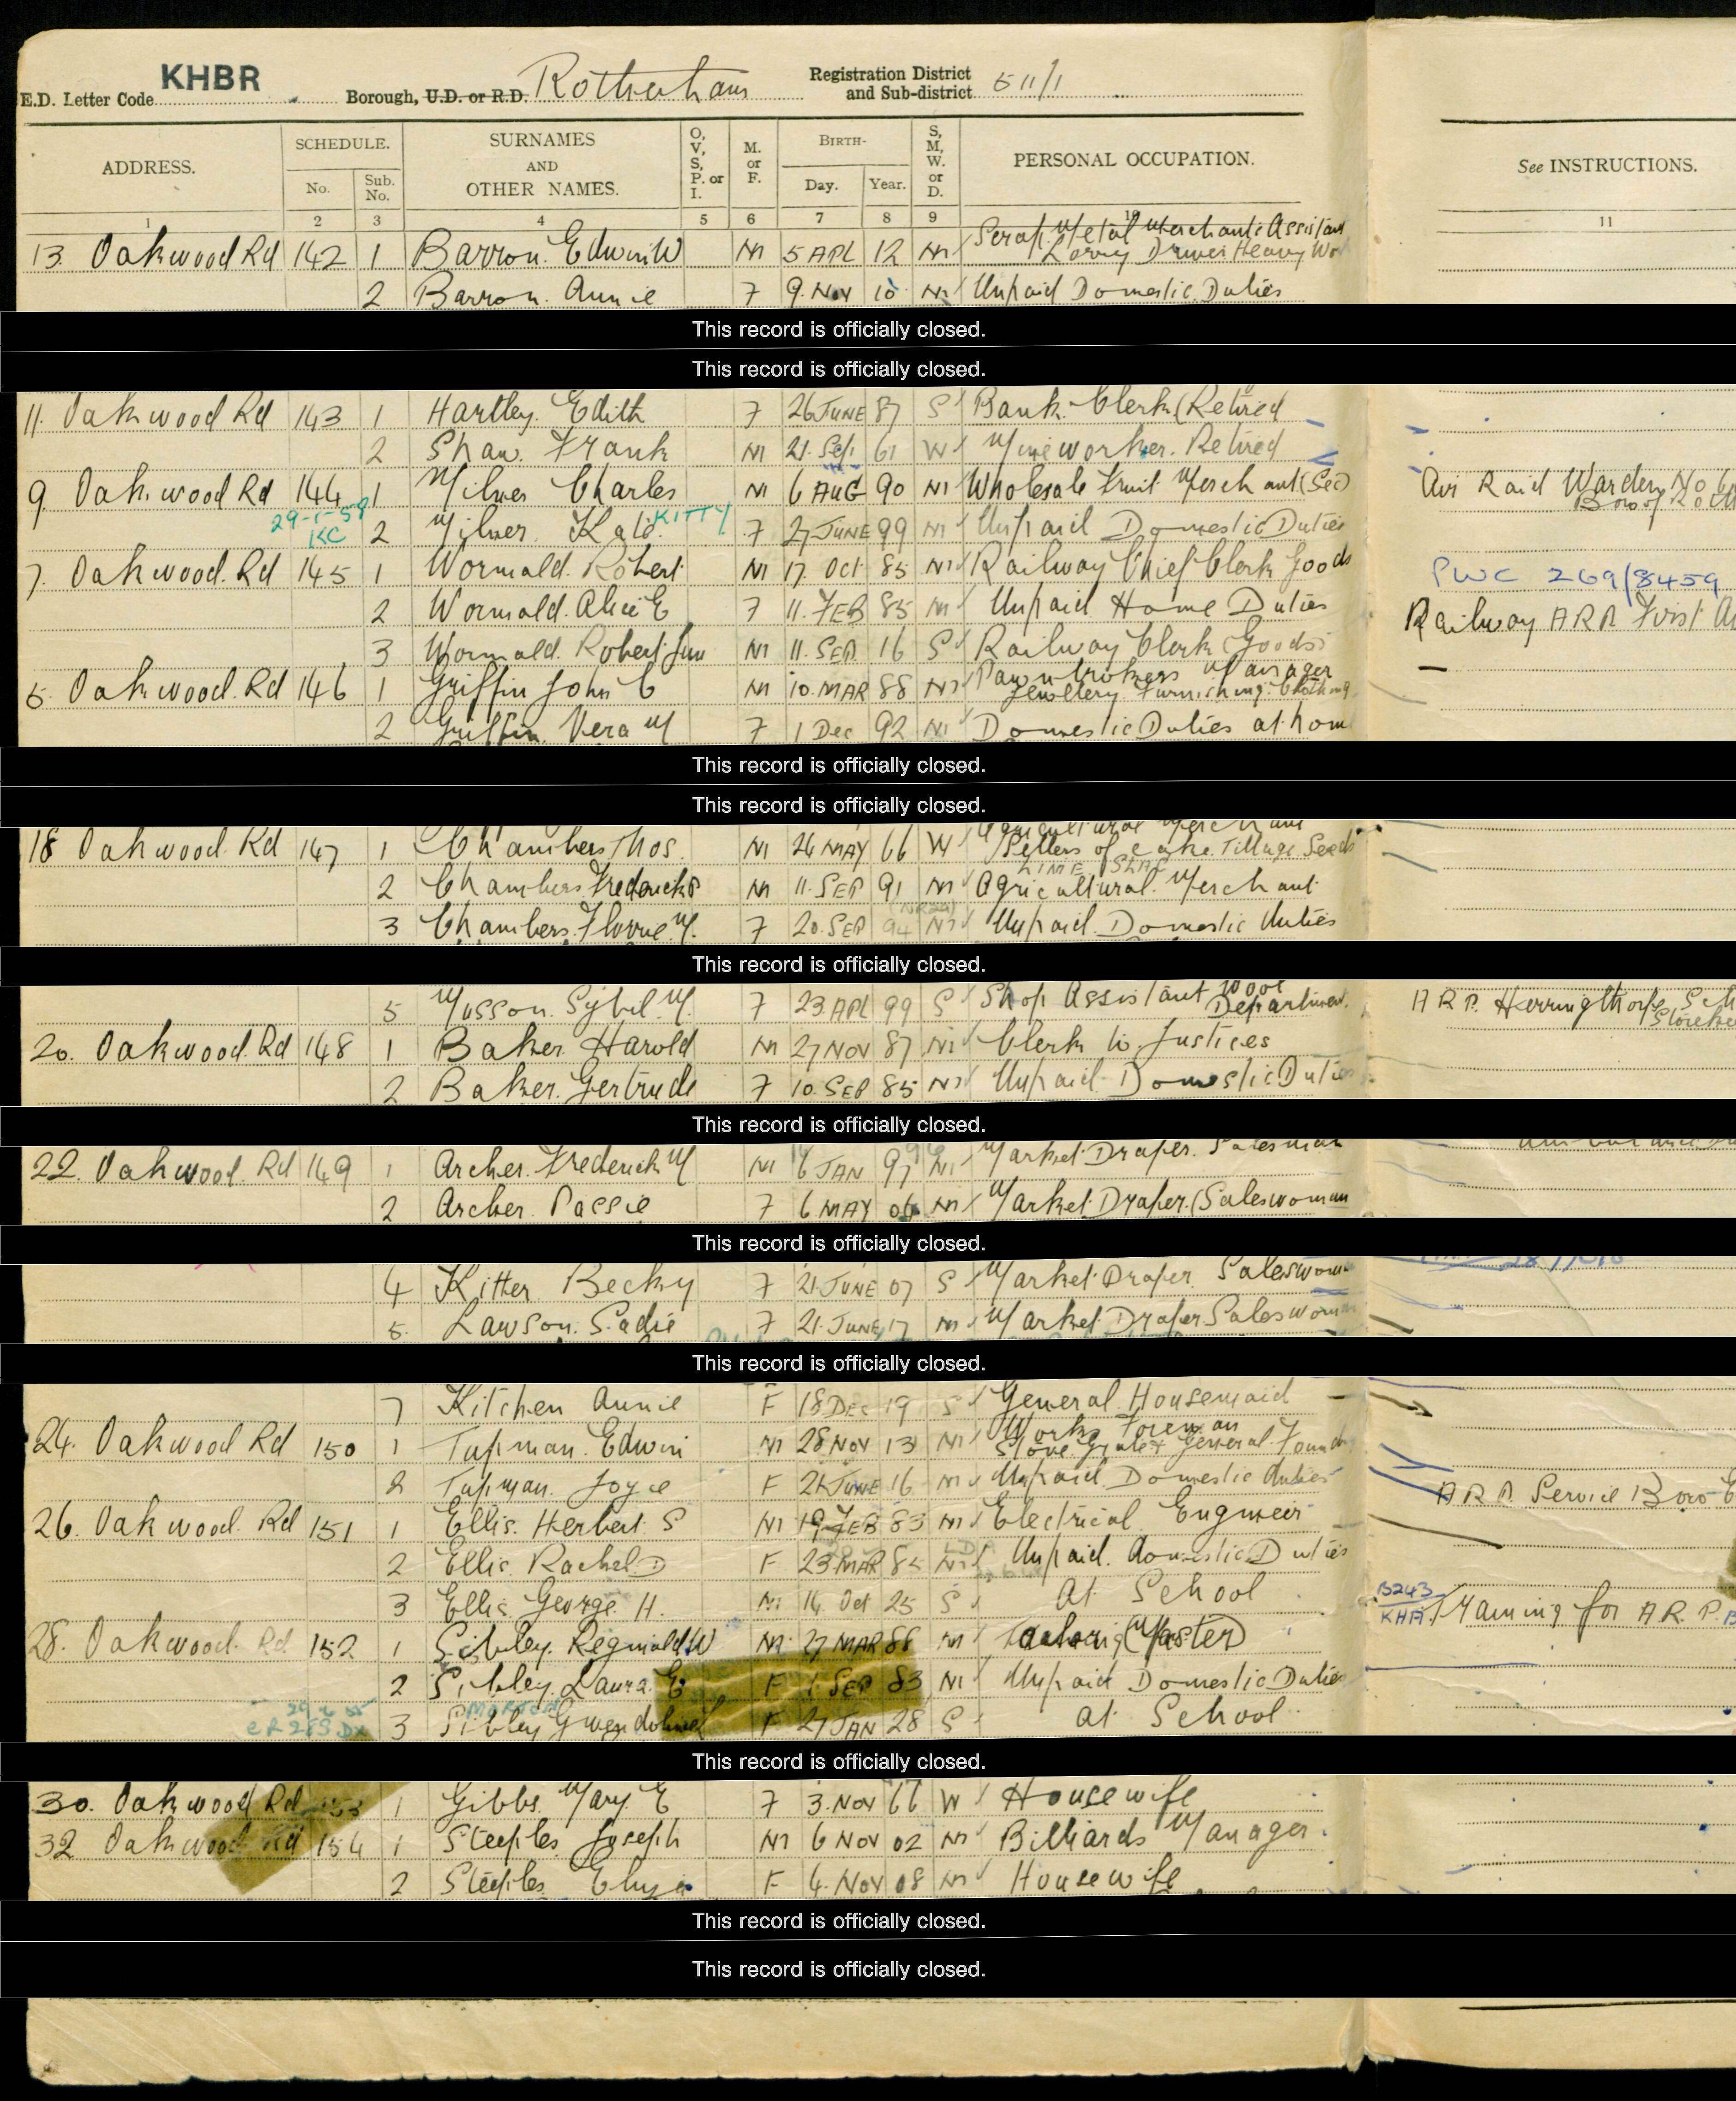 E.D. Letter Code KHBR Borough, U.D. or R.D. Rotherham Registration District and Sub-district 511/1
ADDRESS. SCHEDULE. No. Sub. No. SURNAMES AND OTHER NAMES. O, V, S, P. or I. M. or F. BIRTH- Day. Year. S, M, W. or D. PERSONAL OCCUPATION. See INSTRUCTIONS.
1 2 3 4 5 6 7 8 9 10 11
13. Oakwood Rd 142 1 Barron. Edwin W M 5 APL 12 M Scrap Metal Merchants Assistant Lorry Driver Heavy
2 Barron. Annie F 9. Nov 10 M Unpaid Domestic Duties
This record is officially closed.
This record is officially closed.
11. Oakwood Rd 143 1 Hartley. Edith F 26 JUNE 87 S Bank Clerk (Retired
2 Shaw. Frank M 21. Sep 61 W Mineworker. Retired
9. Oakwood Rd 144 1 Milner Charles M 6 AUG 90 M Wholesale Fruit Merchant (Sec) Air Raid Warden No
29-1-59 KC 2 Milner. Kate. KITTY F 27 JUNE 99 M Unpaid Domestic Duties
7. Oakwood. Rd 145 1 Wormald. Robert M 17. Oct 85 M Railway Chief Clerk Goods PWC 269/8459
2 Wormald. Alice E F 11. FEB 85 M Unpaid Home Duties Railway ARP First
3 Wormald. Robert Jun M 11. SEP. 16 S Railway Clerk (Goods)
5. Oakwood. Rd 146 1 Griffin John C M 10. MAR 88 M Pawnbrokers Manager Jewellery. Furnishing. Clothing
2 Griffin. Vera M F 1 Dec 92 M Domestic Duties at hom
This record is officially closed.
This record is officially closed.
18 Oakwood. Rd 147 1 Chambers Thos. M 26 MAY 66 W Agricultural Merchant Sellers of cake. Tillage Seeds
LIME SLAG
2 Chambers Frederick P M 11. SEP 91 M Agricultural. Merchant
3 Chambers. Florrie M. F 20. SEP 94 M Unpaid. Domestic Duties
This record is officially closed.
5 Musson. Sybil. M. F 23 APL 99 S Shop Assistant Wool Department. A R P. Herringthorpe Sch
20. Oakwood. Rd 148 1 Baker. Harold M 27 NOV 87 M Clerk to Justices
2 Baker. Gertrude F 10. SEP 85 M Unpaid Domestic Duties
This record is officially closed.
22. Oakwood. Rd 149 1 Archer. Frederick M M 6 JAN 97 M Market Draper. Salesman
2 Archer. Passie F 6 MAY 06 M Market Draper. (Saleswoman
This record is officially closed.
4 Kitter Becky F 21 JUNE 07 S Market Draper Saleswoma
5. Lawson. Sadie F 21. JUNE 17 M Market Draper Saleswoman
This record is officially closed.
7 Kitchen Annie F 18 Dec 19 S General Housemaid
24. Oakwood Rd 150 1 Tapman. Edwin M 28 NOV 13 M Works Foreman Stove Grate & General Foundry
2 Tapman. Joyce F 21 JUNE 16 M Unpaid. Domestic Duties A R P Service Boro
26. Oakwood. Rd 151 1 Ellis. Herbert S M 19 FEB 83 M Electrical Engineer
2 Ellis. Rachel D F 23 MAR 85 M Unpaid. Domestic Duties
3 Ellis. George H. M 14 Oct 25 S At School B243 KHA Training for A R. P.
28. Oakwood. Rd 152 1 Sibley. Reginald W M 27 MAR 88 M Tailoring (Master)
2 Sibley. Laura. E F 1 SEP 83 M Unpaid Domestic Duties
3 Sibley Gwendoline F 27 JAN 28 S At School
This record is officially closed.
30. Oakwood Rd 153 1 Gibbs. Mary. E F 3. NOV 66 W Housewife
32 Oakwood Rd 154 1 Steeples Joseph M 6 NOV 02 M Billiards Manager.
2 Steeples. Eliza F 4. NOV 08 M Housewife
This record is officially closed.
This record is officially closed.